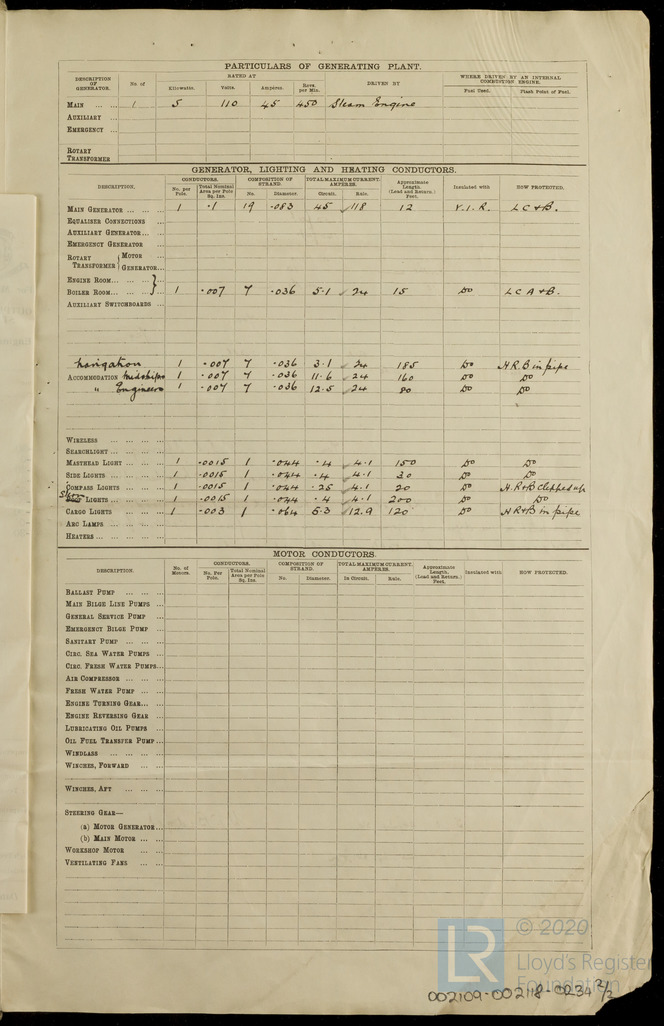 PARTICULARS OF GENERATING PLANT.
DESCRIPTION OF GENERATOR. No. of RATED AT DRIVEN BY WHERE DRIVEN BY AN INTERNAL COMBUSTION ENGINE.
Kilowatts. Volts. Ampères. Revs. per Min. Fuel Used. Flash Point of Fuel.
MAIN ... ... 1 5 110 45 450 Steam Engine
AUXILIARY ...
EMERGENCY ...
ROTARY TRANSFORMER
GENERATOR, LIGHTING AND HEATING CONDUCTORS.
DESCRIPTION. CONDUCTORS. COMPOSITION OF STRAND. TOTAL MAXIMUM CURRENT. AMPERES. Approximate Length. (Lead and Return.) Feet. Insulated with HOW PROTECTED.
No. per Pole. Total Nominal Area per Pole Sq. Ins. No. Diameter. Circuit. Rule.
MAIN GENERATOR ... ... ... 1 .1 19 .083 45 118 12 V.I.R. L C & B.
EQUALISER CONNECTIONS ...
AUXILIARY GENERATOR... ...
EMERGENCY GENERATOR ...
ROTARY TRANSFORMER { MOTOR ...
GENERATOR...
ENGINE ROOM... ... ... }
BOILER ROOM... ... ... 1 .007 7 .036 5.1 24 15 DO L C A & B.
AUXILIARY SWITCHBOARDS ...
Navigation 1 .007 7 .036 3.1 24 185 DO H R. B in pipe
ACCOMMODATION Midships 1 .007 7 .036 11.6 24 160 DO DO
" Engineers 1 .007 7 .036 12.5 24 80 DO DO
WIRELESS ... ... ... ...
SEARCHLIGHT ... ... ... ...
MASTHEAD LIGHT ... ... ... 1 .0015 1 .044 .4 4.1 150 DO DO
SIDE LIGHTS ... ... ... ... 1 .0015 1 .044 .4 4.1 30 DO DO
COMPASS LIGHTS ... ... ... 1 .0015 1 .044 .25 4.1 20 DO H. R & B Clipped up
Stern LIGHTS ... ... ... 1 .0015 1 .044 .4 4.1 200 DO DO
CARGO LIGHTS ... ... ... 1 .003 1 .064 5.3 12.9 120 DO H R & B in pipe
ARC LAMPS ... ... ... ...
HEATERS ... ... ... ... ...
MOTOR CONDUCTORS.
DESCRIPTION. No. of Motors. CONDUCTORS. COMPOSITION OF STRAND. TOTAL MAXIMUM CURRENT. AMPERES. Approximate Length. (Lead and Return.) Feet. Insulated with HOW PROTECTED.
No. Per Pole. Total Nominal Area per Pole Sq. Ins. No. Diameter. In Circuit. Rule.
BALLAST PUMP ... ... ...
MAIN BILGE LINE PUMPS ...
GENERAL SERVICE PUMP ...
EMERGENCY BILGE PUMP ...
SANITARY PUMP ... ... ...
CIRC. SEA WATER PUMPS ...
CIRC. FRESH WATER PUMPS...
AIR COMPRESSOR ... ...
FRESH WATER PUMP ... ...
ENGINE TURNING GEAR... ...
ENGINE REVERSING GEAR ...
LUBRICATING OIL PUMPS ...
OIL FUEL TRANSFER PUMP...
WINDLASS ... ... ... ...
WINCHES, FORWARD ... ...
WINCHES, AFT ... ...
STEERING GEAR—
(a) MOTOR GENERATOR...
(b) MAIN MOTOR ... ...
WORKSHOP MOTOR ... ...
VENTILATING FANS ... ...
LR
© 2020
Lloyd's Register
Foundation
002109-002118-0234 2/2